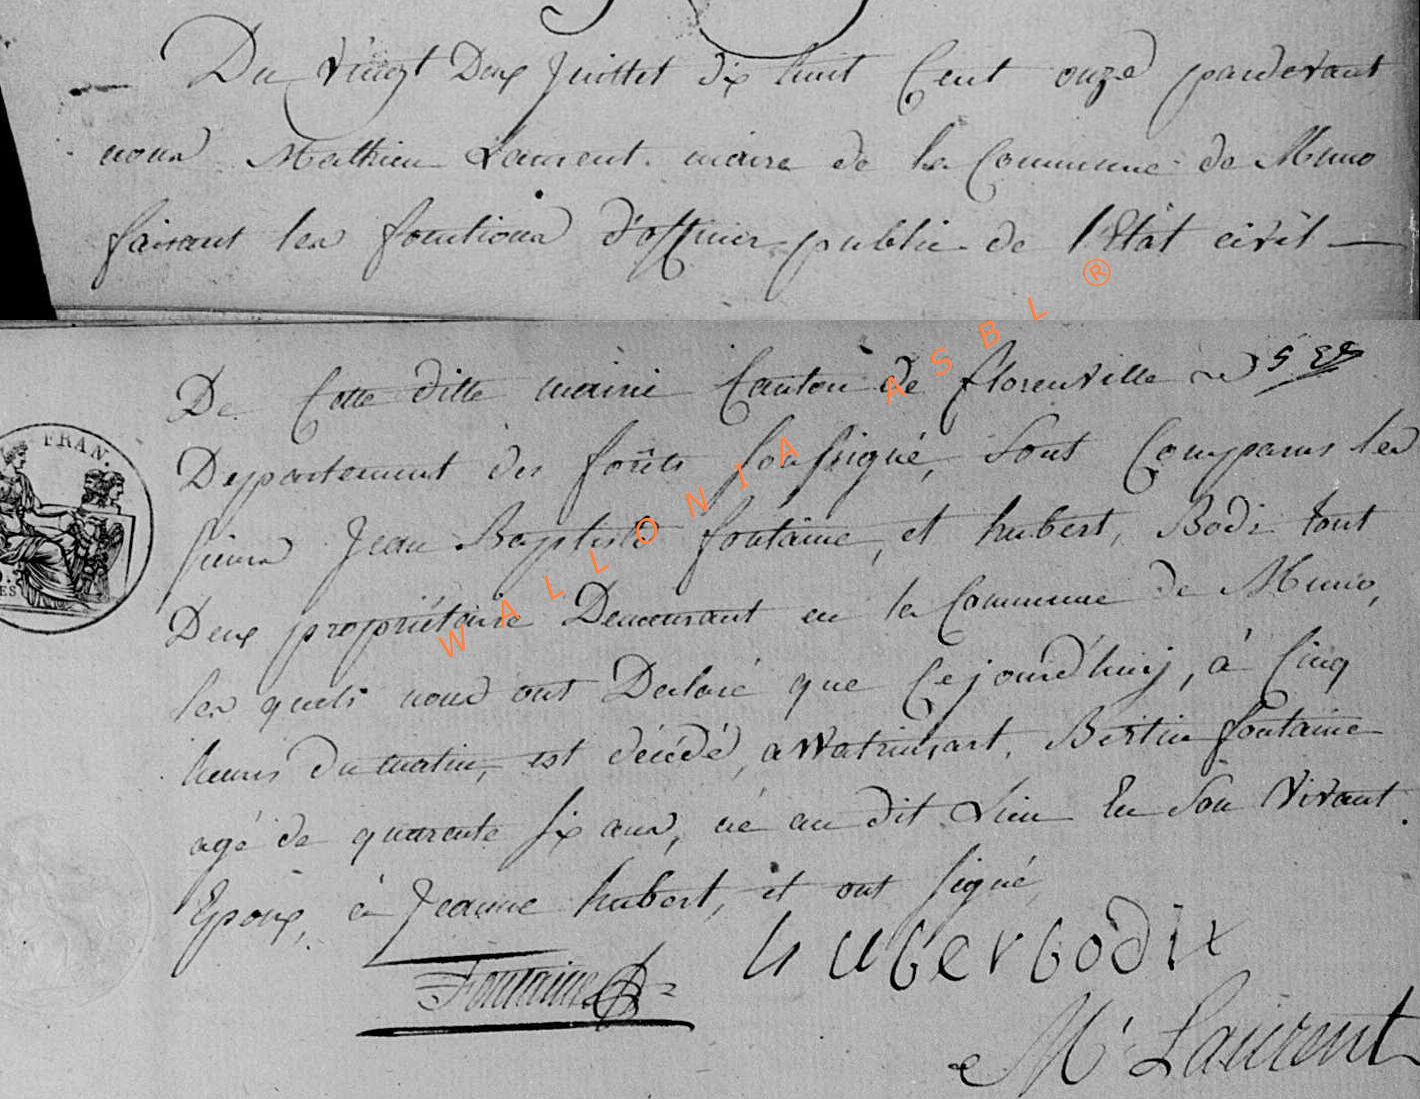 Du vingt Deux Juillet dix huit Cent onze pardevant
nous Mathieu Laurent. maire de la Commune de Muno
faisant les fonctions d'officier public de l'Etât civil
De Cette ditte mairie Canton de florenville
Departement des forêts soussigné, sont Comparus les
sieurs Jean Baptiste fontaine, et hubert, Bodi tout
Deux propriétaire Demeurant en la Commune de Muno,
les quels nous ont Declaré que Cejourd'huij, à Cinq
heures du matin, est décédé, a Watrinsart, Bertin fontaine
agé de quarente six ans, né au dit Lieu En son vivant
Epoux, à Jeanne hubert, et ont signé
Fontaine
huberbodix
M Laurent
FRAN.
WALLONIA ASBL ®